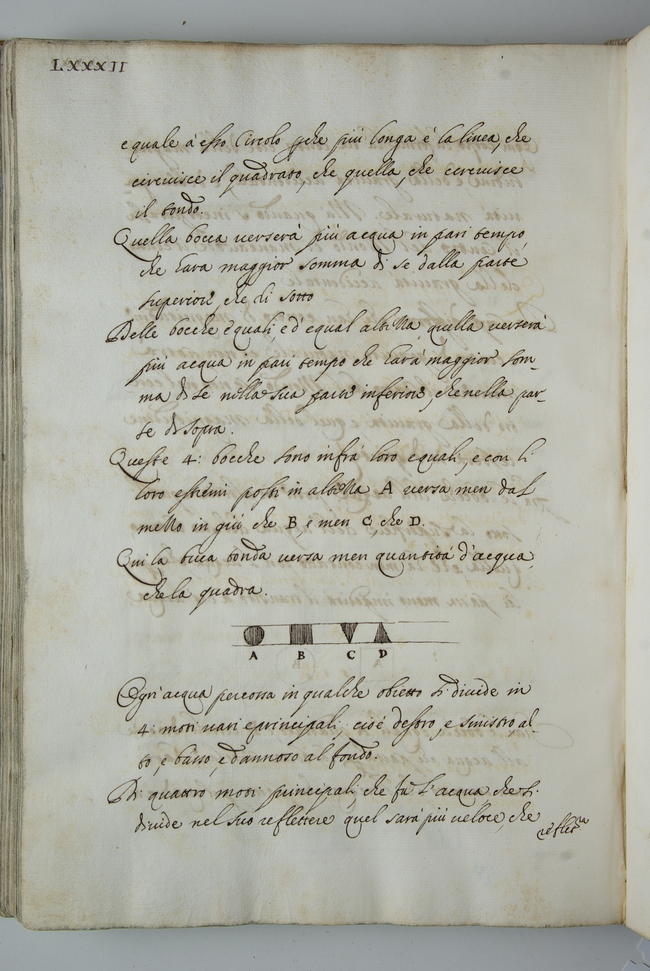 LXXXII
equale à esso Circolo pche più longa è la linea, che
circuisce il quadrato, che quella, che circuisce
il tondo.
Quella bocca verserà più acqua in pari tempo
che harà maggior somma di se dalla parte
superiore, che di sotto
Delle bocche equali, e d'equal altezza quella verserà
più acqua in pari tempo che harà maggior som-
ma di se nella sua parte inferiore, che nella par-
te di sopra.
Queste 4: bocche sono infrà loro equali, e con li
loro estremi posti in altezza A versa men dal
mezzo in giù che B, e men C, che D.
Qui la buca tonda versa men quantità d'acqua,
che la quadra.
A B C D
Ogni acqua percossa in qualche obietto si divide in
4: moti vari e principali, cioè destro, e sinistro, al-
to, e basso, e dannoso al fondo.
Di quattro moti principali, che fà l'acqua che si
divide nel suo reflettere quel sarà più veloce, che